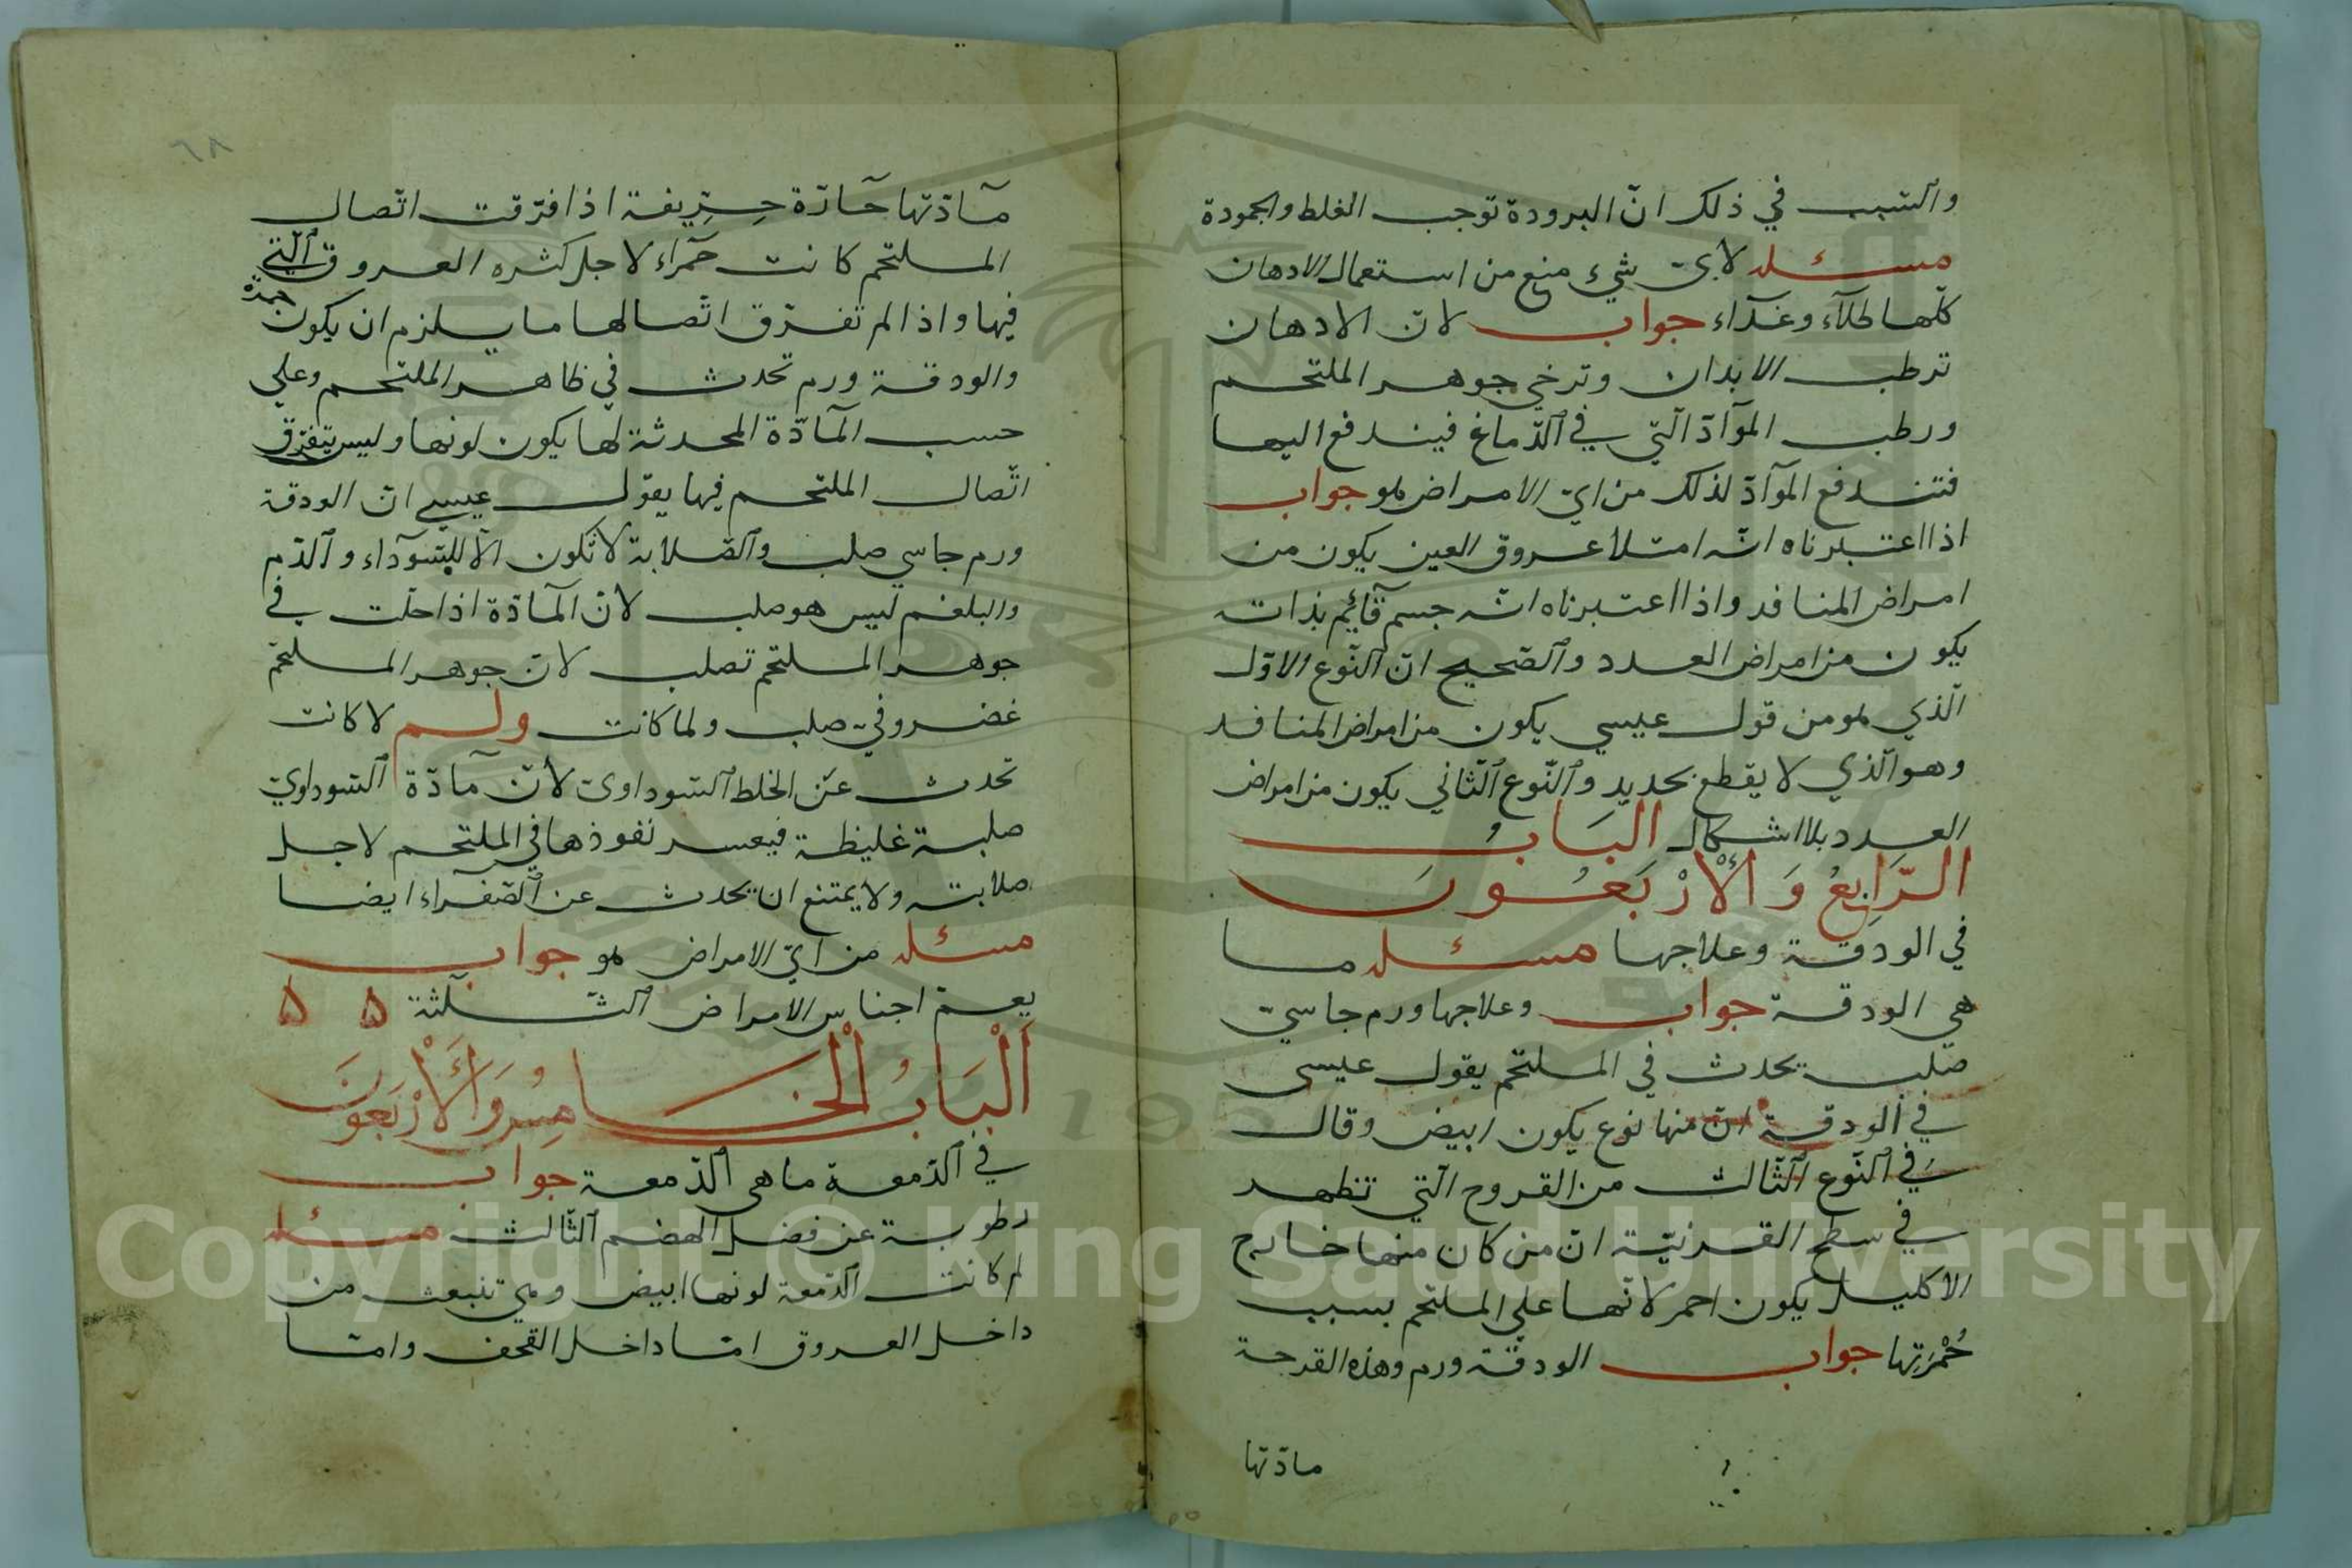 والسبب في ذلك انّ البرودة توجب الغلط والجمودة
مسئله لايّ شيء منع من استعمال الادهان
كلّها طلآء وغذآء جواب لانّ الادهان
ترطب الابدان وترخي جوهر الملتحم
ورطب الموآدّ الّتي في الدّماغ فيندفع اليها
فتندفع الموآدّ لذلك من ايّ الامراض هو جواب
اذا اعتبرناه انّه امتلا عروق العين يكون من
امراض المنافد واذا اعتبرناه انّه جسم قآئم بذاته
يكون من امراض العدد والصّحيح انّ النّوع الاوّل
الّذي هو من قول عيسي يكون من امراض المنافد
وهو الّذي لا يقطع بحديد والنّوع الثّاني يكون من امراض
العدد بلا اشكال البَابُ
الرّابعُ وَالْأرْبَعُونَ
في الودقة وعلاجها مسئله ما
هي الودقة جواب وعلاجها ورم جاسيّ
صلب يحدث في الملتحم يقول عيسى
في الودقة انّ منها نوع يكون ابيض وقال
في النّوع الثّالث من القروح الّتي تظهر
في سطح القرنيّة انّ من كان منها خارج
الاكليل يكون احمر لانّها علي الملتحم بسبب
حُمْرَتِها جواب الودقة ورم وهذه القرحة
مادّتها
٦٨
مآدّتها حآدّة حرّيفة اذا فرّقت اتّصال
الملتحم كانت حمرآء لاجل كثره العروق الّتي
فيها واذا لم تفرّق اتّصالها ما يلزم ان يكون حمرة
والودقة ورم تحدث في ظاهر الملتحم وعلي
حسب المآدّة المحدثة لها يكون لونها وليس يتفرّق
اتّصال الملتحم فيها يقول عيسي انّ الودقة
ورم جاسي صلب والصّلابة لا تكون الّا للسّودآء والدّم
والبلغم ليس هو صلب لانّ المآدّة اذا حلّت في
جوهر الملتحم تصلب لانّ جوهر الملتحم
غضروفيّ صلب ولما كانت ولم لا كانت
تحدث عن الخلط السّوداوي لانّ مآدّة السّوداويّ
صلبة غليظة فيعسر نفوذها في الملتحم لاجل
صلابته ولا يمتنع ان يحدث عن الصّفرآء ايضا
مسئله من ايّ الامراض هو جواب
يعمّ اجناس الامراض الثّلثة ۵ ۵
اَلْبَابُ الْخَامِسُ وَالْأَرْبَعُونَ
في الدّمعة ما هي الدّمعة جواب
رطوبة عن فضل الهضم الثّالث مسئله
لم كانت الدّمعة لونها ابيض وهي تنبعث من
داخل العروق امّا داخل القحف وامّا